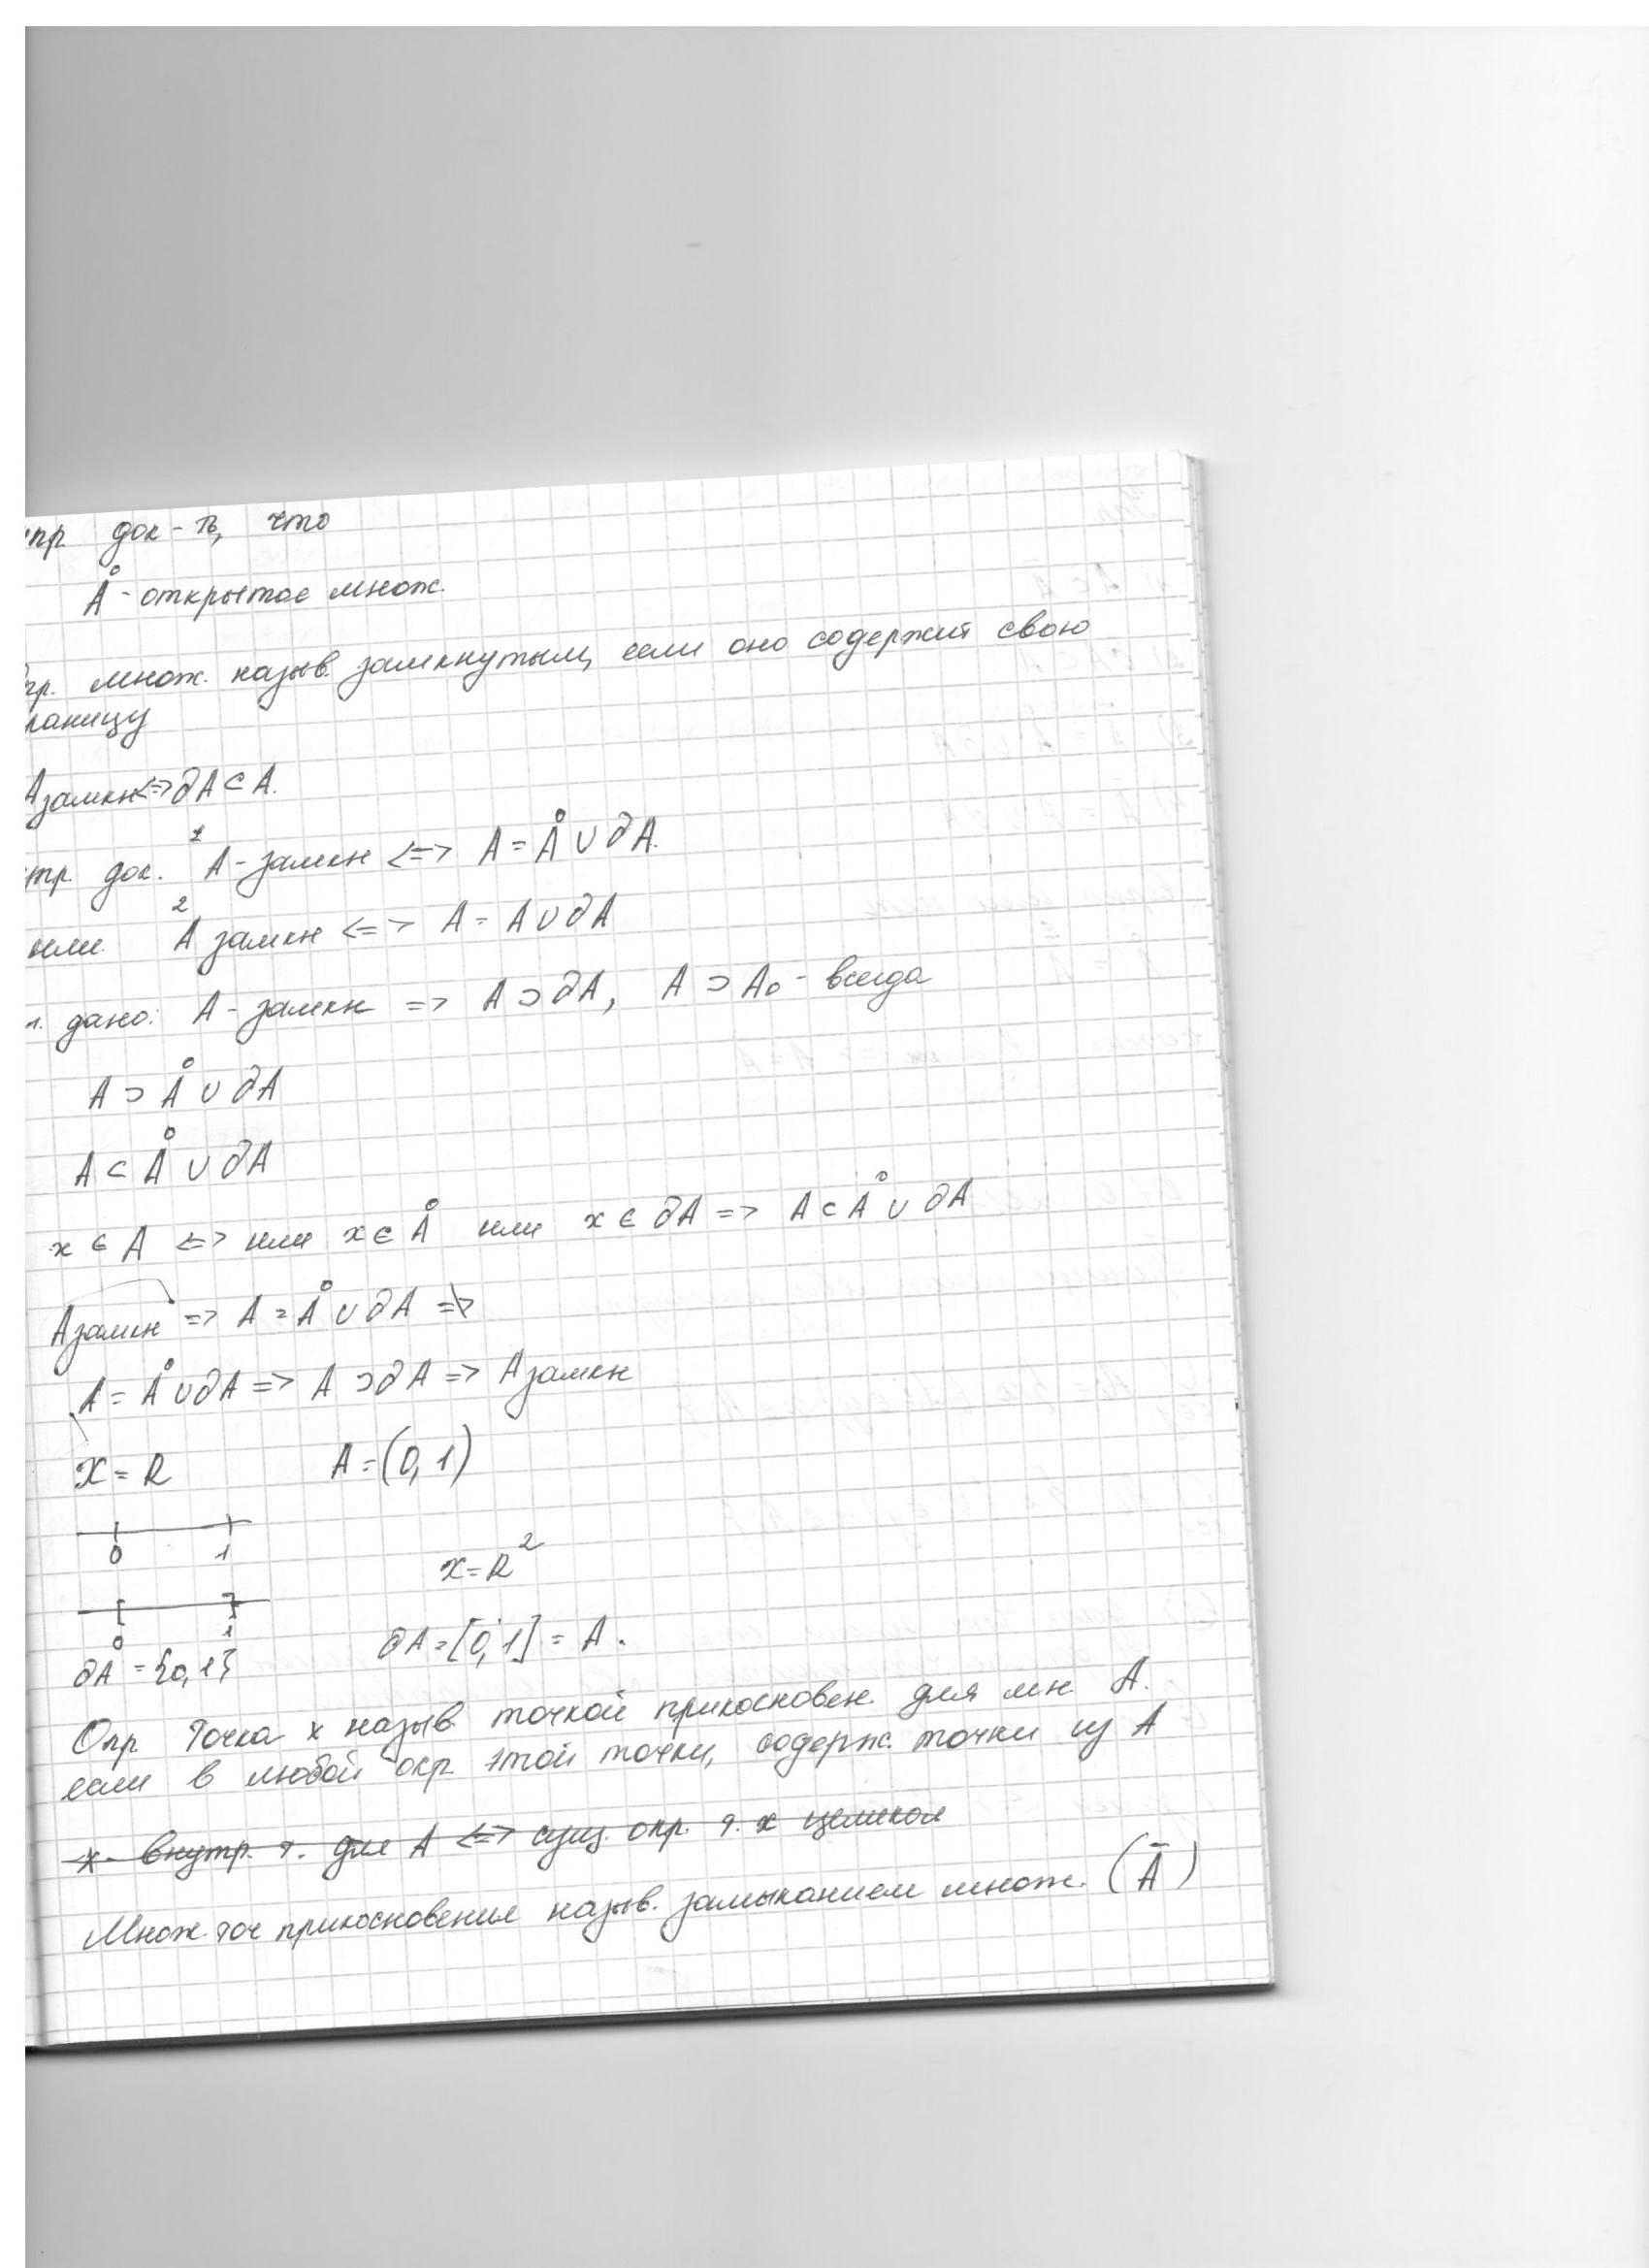 упр док-ть, что
Å - открытое множ.
Опр. множ. назыв. замкнутым, если оно содержит свою
границу
A замкн <=> ∂A ⊂ A.
упр. док. 1 A - замкн <=> A = Å ∪ ∂A.
или 2 A замкн <=> A = A ∪ ∂A
1. дано: A - замкн => A ⊃ ∂A, A ⊃ A₀ - всегда
A ⊃ Å ∪ ∂A
A ⊂ Å ∪ ∂A
x ∈ A <=> или x ∈ Å или x ∈ ∂A => A ⊂ Å ∪ ∂A
A замкн => A = Å ∪ ∂A =>
A = Å ∪ ∂A => A ⊃ ∂A => A замкн
X = R A = (0, 1)
0 1
X = R²
0 1
∂A = {0, 1} ∂A = [0, 1] = A.
Опр Точка x назыв. точкой прикосновен. для мн. A.
если в любой окр. этой точки, содерж. точки из A
x - внутр. т. для A <=> сущ. окр. т. x целиком
Множ. точ прикосновения назыв. замыканием множ. (Ā)